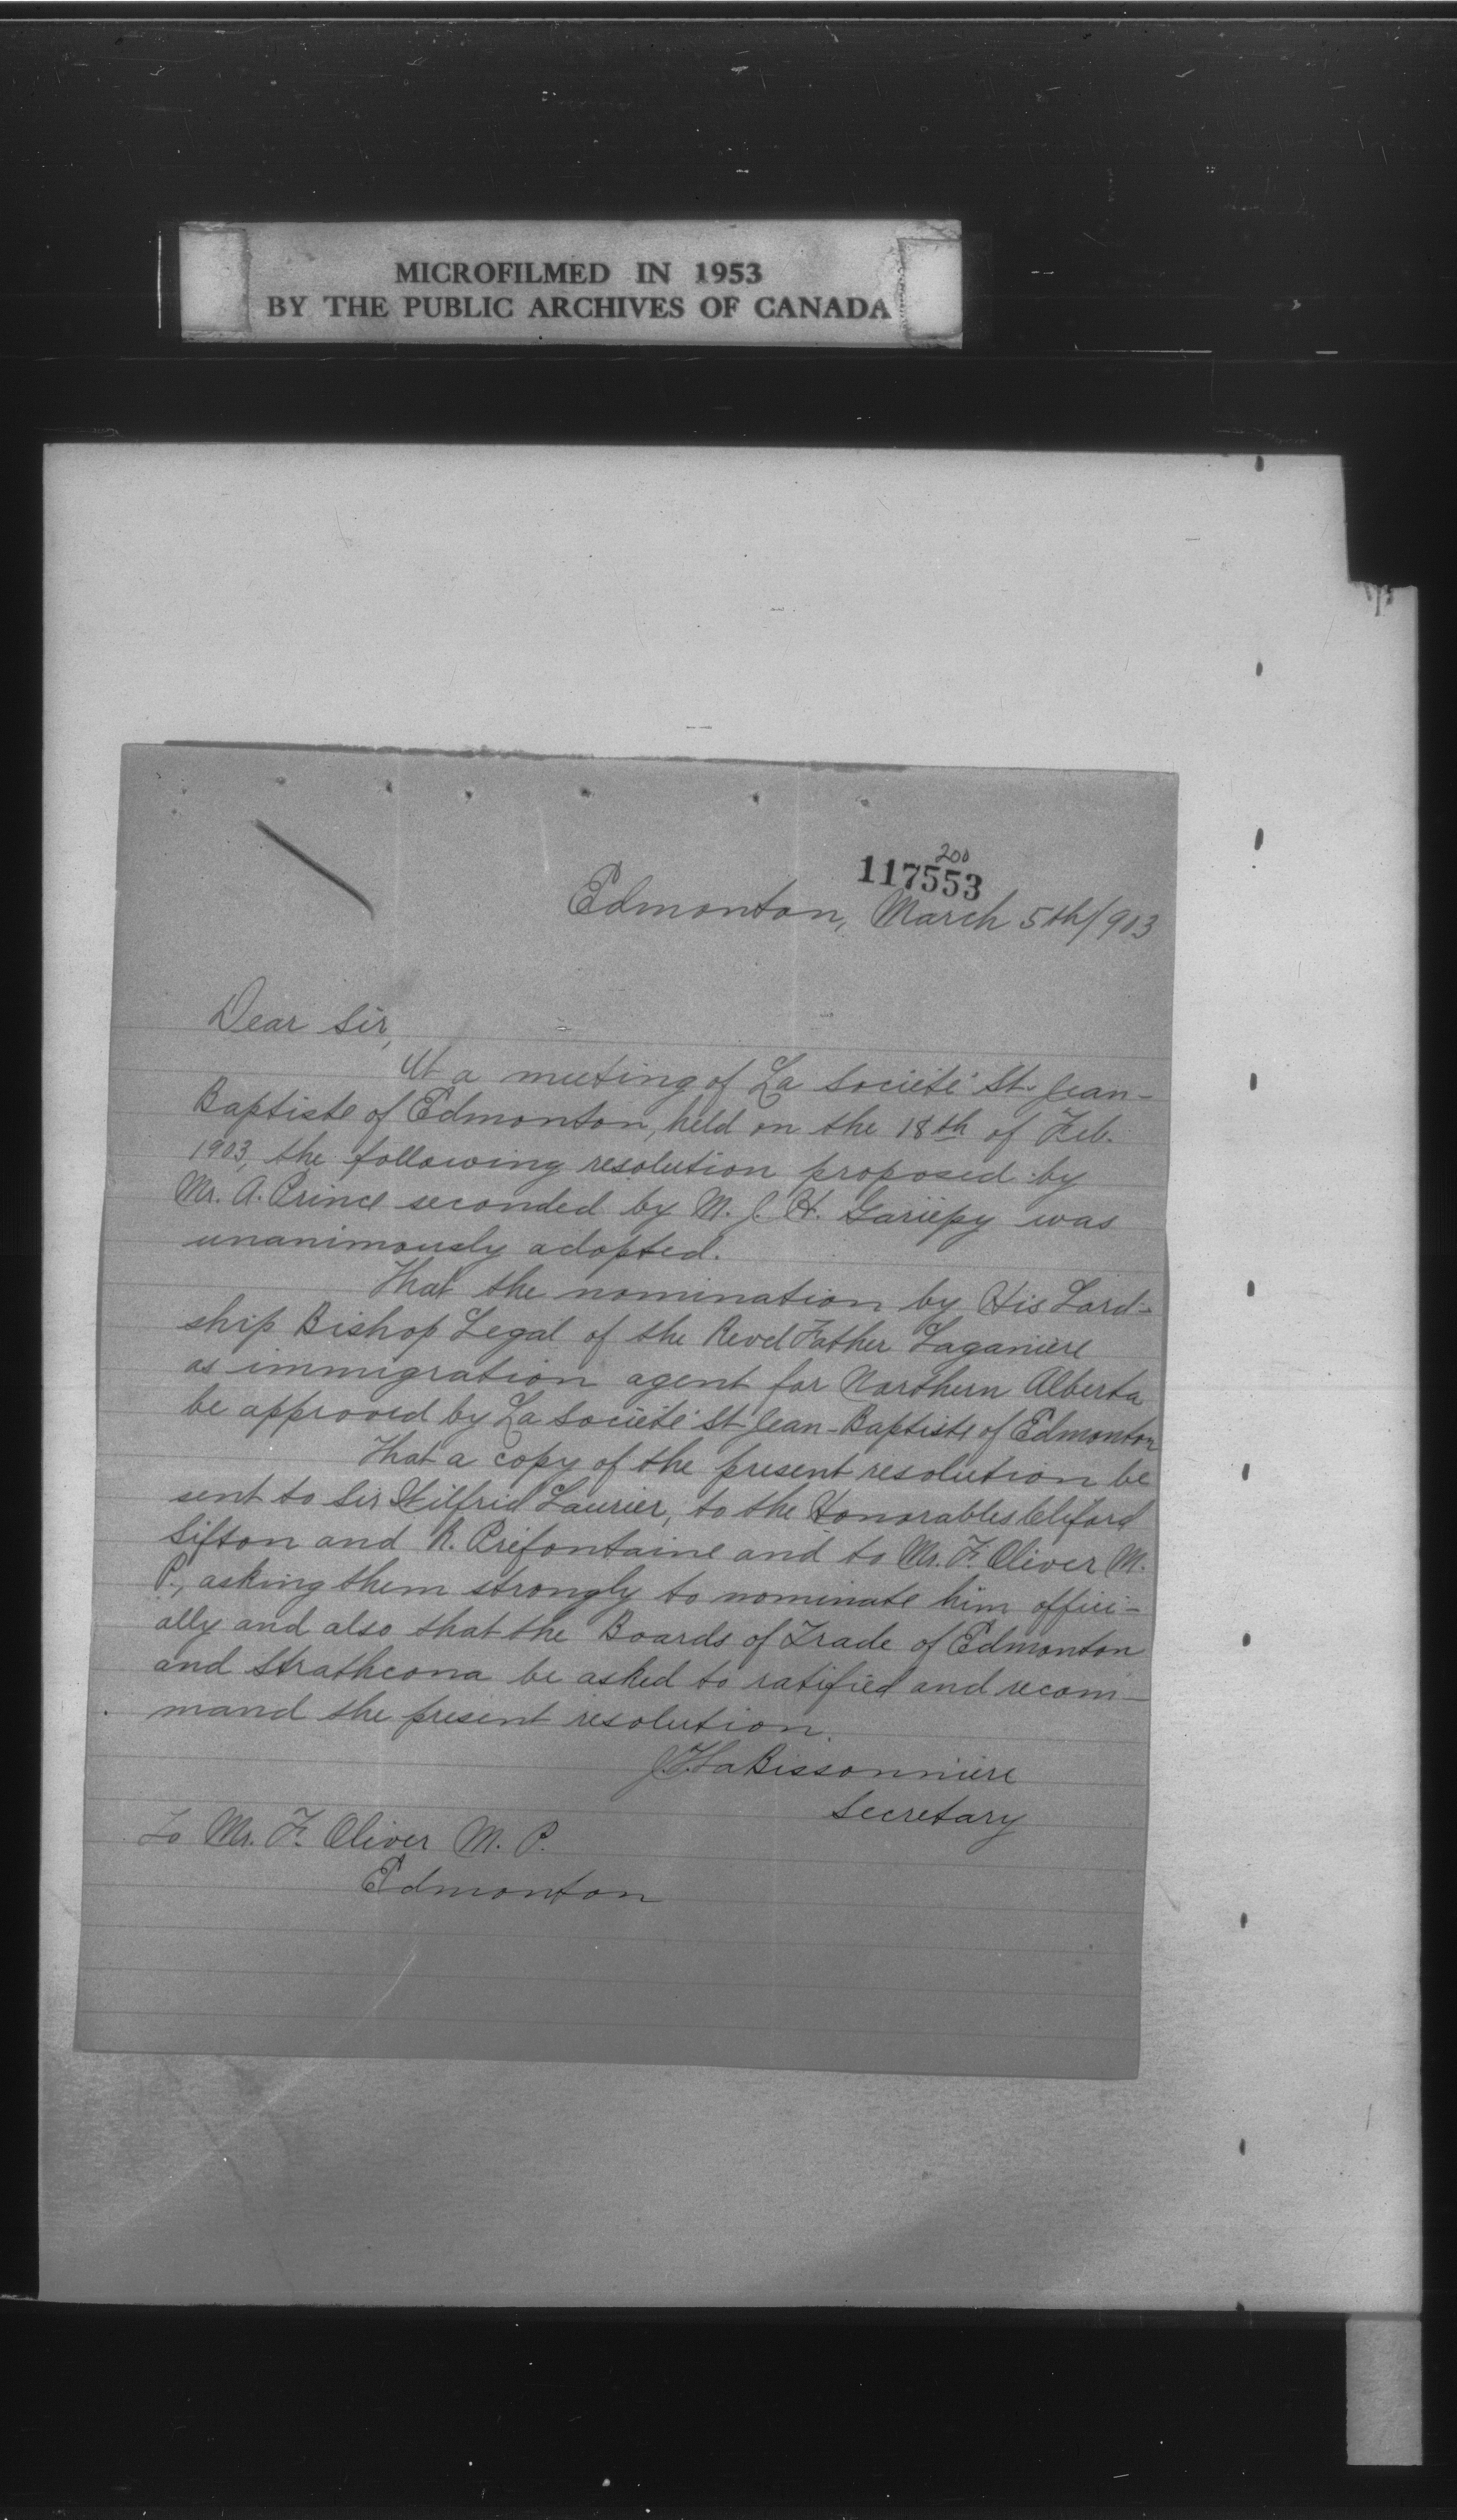 MICROFILMED IN 1953
BY THE PUBLIC ARCHIVES OF CANADA
200
117553
Edmonton, March 5th/903
Dear Sir,
At a meeting of La Société St. Jean-
Baptiste of Edmonton, held on the 18th of Feb.
1903, the following resolution proposed by
Mr. A. Prince seconded by M. J. H. Gariépy was
unanimously adopted.
That the nomination by His Lord-
ship Bishop Legal of the Revd Father Laganière
as immigration agent for Northern Alberta
be approved by La Société St Jean-Baptiste of Edmonton
That a copy of the present resolution be
sent to Sir Wilfrid Laurier, to the Honorables Cliford
Sifton and R. Préfontaine and to Mr. F. Oliver M.
P., asking them strongly to nominate him offici-
ally and also that the Boards of Trade of Edmonton
and Strathcona be asked to ratified and recom-
mand the present resolution.
J. H. LaBissonnière
Secretary
To Mr. F. Oliver M. P.
Edmonton